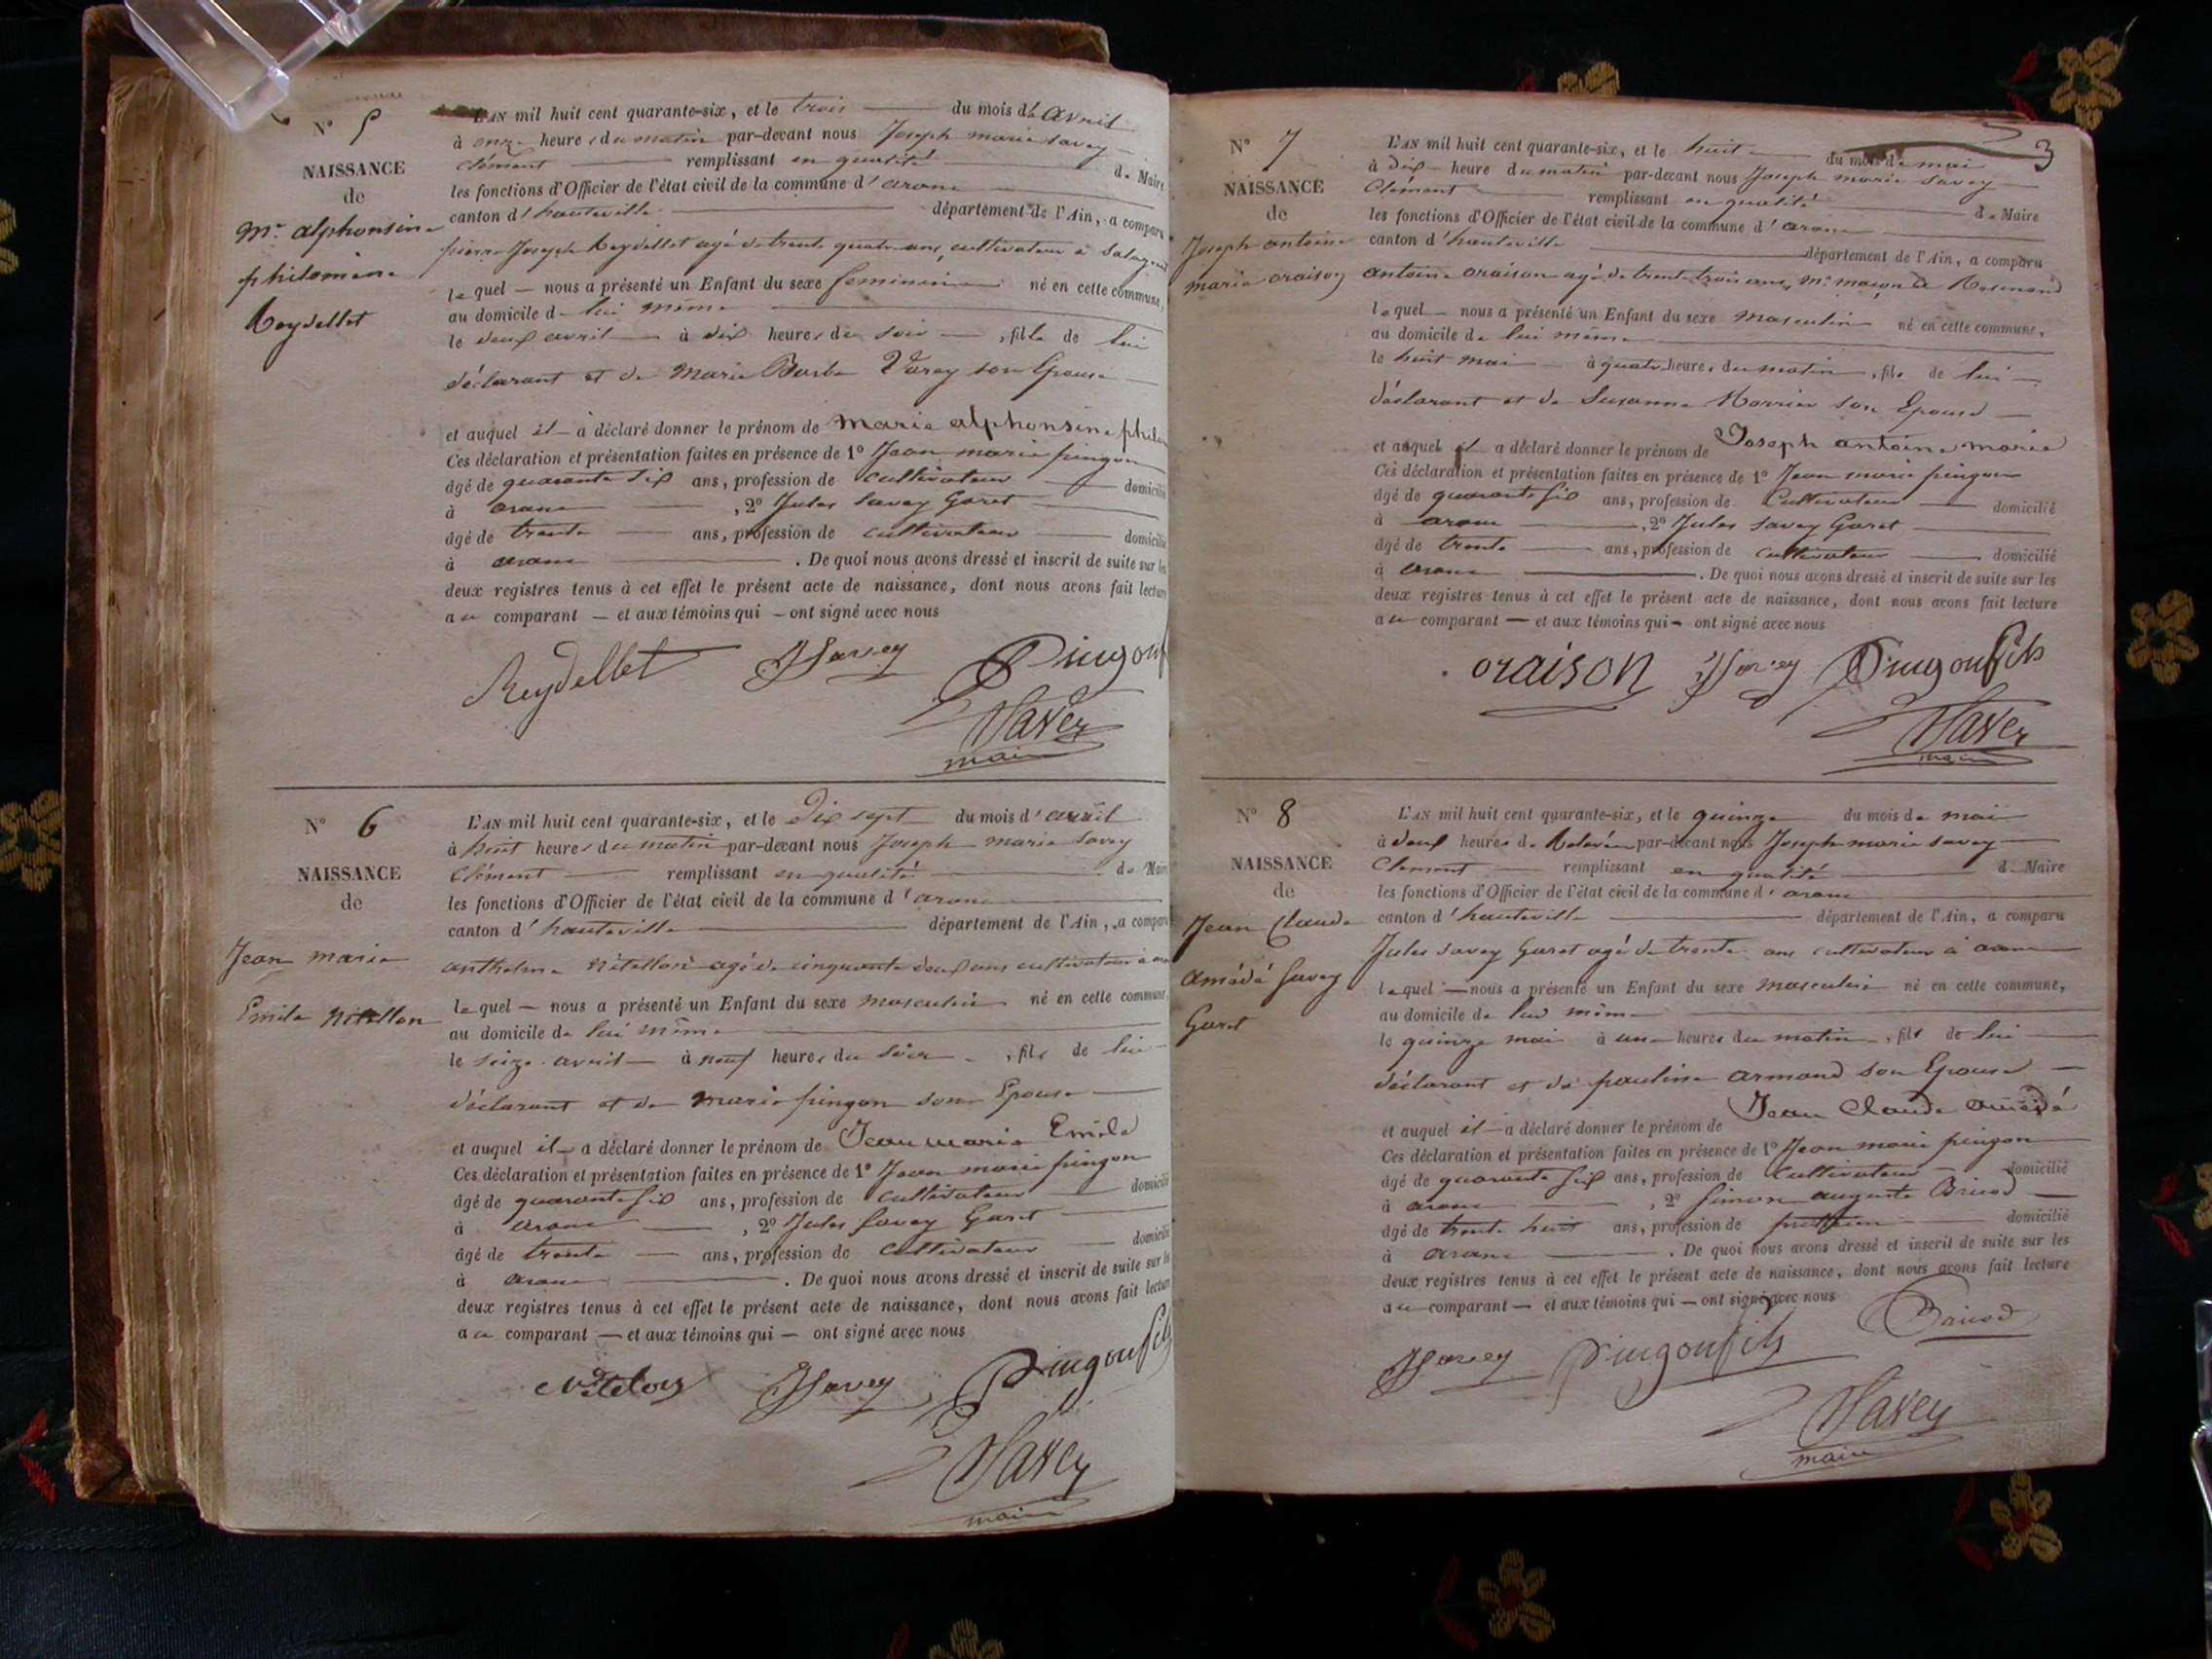 N° 5
NAISSANCE
de
Me alphonsine
philomène
Reydellet
L'AN mil huit cent quarante-six, et le trois du mois d'avril
à onze heures du matin par-devant nous Joseph marie savey
Clément remplissant en qualité de Maire
les fonctions d'Officier de l'état civil de la commune d'aranc
canton d'hauteville département de l'Ain, a comparu
pierre Joseph Reydellet agé de trente quatre ans, cultivateur à
lequel nous a présenté un Enfant du sexe feminin né en cette commune,
au domicile de lui même
le deux avril à dix heures du soir, fille de lui
déclarant et de Marie Varey son Epouse
et auquel il a déclaré donner le prénom de marie alphonsine
Ces déclaration et présentation faites en présence de 1° Jean marie pingon
âgé de quarante six ans, profession de cultivateur domicilié
à aranc, 2° Jules Savey Garet
âgé de trente ans, profession de cultivateur domicilié
à aranc. De quoi nous avons dressé et inscrit de suite sur les
deux registres tenus à cet effet le présent acte de naissance, dont nous avons fait lecture
au comparant et aux témoins qui ont signé avec nous
Reydellet JSavey Pingon
Savey
maire
N° 6
NAISSANCE
de
Jean marie
Emile Nétellon
L'AN mil huit cent quarante-six, et le Dix sept du mois d'avril
à huit heures du matin par-devant nous Joseph marie Savey
Clément remplissant en qualité de Maire
les fonctions d'Officier de l'état civil de la commune d'aranc
canton d'hauteville département de l'Ain, a comparu
anthelme agé de cinquante deux ans cultivateur à
lequel nous a présenté un Enfant du sexe masculin né en cette commune,
au domicile de lui même
le seize avril à neuf heures du soir, fils de lui
déclarant et de marie pingon son Epouse
et auquel il a déclaré donner le prénom de Jean marie Emile
Ces déclaration et présentation faites en présence de 1° Jean marie pingon
âgé de quarante six ans, profession de cultivateur domicilié
à aranc, 2° Jules Savey Garet
âgé de trente ans, profession de cultivateur domicilié
à aranc. De quoi nous avons dressé et inscrit de suite sur les
deux registres tenus à cet effet le présent acte de naissance, dont nous avons fait lecture
au comparant et aux témoins qui ont signé avec nous
JSavey Pingon fils
Savey
maire
3
N° 7
NAISSANCE
de
Joseph antoine
marie oraison
L'AN mil huit cent quarante-six, et le huit du mois de mai
à dix heure du matin par-devant nous Joseph marie Savey
Clément remplissant en qualité de Maire
les fonctions d'Officier de l'état civil de la commune d'aranc
canton d'hauteville département de l'Ain, a comparu
antoine oraison agé de trente trois ans, me maçon à
lequel nous a présenté un Enfant du sexe masculin né en cette commune,
au domicile de lui même
le huit mai à quatre heures du matin, fils de lui
déclarant et de Susanne son Epouse
et auquel il a déclaré donner le prénom de Joseph antoine marie
Ces déclaration et présentation faites en présence de 1° Jean marie pingon
âgé de quarante six ans, profession de Cultivateur domicilié
à aranc, 2° Jules Savey Garet
âgé de trente ans, profession de cultivateur domicilié
à aranc. De quoi nous avons dressé et inscrit de suite sur les
deux registres tenus à cet effet le présent acte de naissance, dont nous avons fait lecture
au comparant et aux témoins qui ont signé avec nous
oraison JSavey Pingon fils
Savey
maire
N° 8
NAISSANCE
de
Jean Claude
Amédé Savey
Garet
L'AN mil huit cent quarante-six, et le quinze du mois de mai
à deux heures de Relevée par-devant nous Joseph marie savey
Clement remplissant en qualité de Maire
les fonctions d'Officier de l'état civil de la commune d'aranc
canton d'hauteville département de l'Ain, a comparu
Jules Savey Garet agé de trente ans cultivateur à aranc
lequel nous a présenté un Enfant du sexe masculin né en cette commune,
au domicile de lui même
le quinze mai à une heures du matin, fils de lui
déclarant et de pauline armand son Epouse
et auquel il a déclaré donner le prénom de Jean Claude amédé
Ces déclaration et présentation faites en présence de 1° Jean marie pingon
âgé de quarante six ans, profession de Cultivateur domicilié
à aranc, 2° Simon auguste Brisod
âgé de trente huit ans, profession de domicilié
à aranc. De quoi nous avons dressé et inscrit de suite sur les
deux registres tenus à cet effet le présent acte de naissance, dont nous avons fait lecture
au comparant et aux témoins qui ont signé avec nous
JSavey Pingon fils
Savey
maire